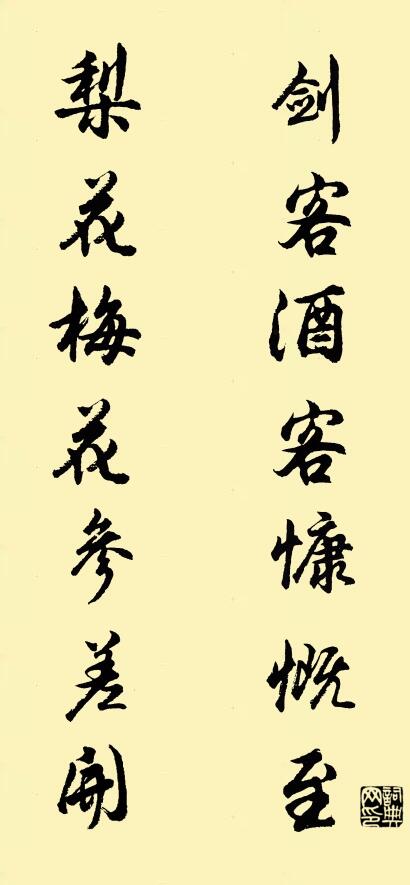 剑客酒客慷慨至
梨花梅花参差开
詞典网印